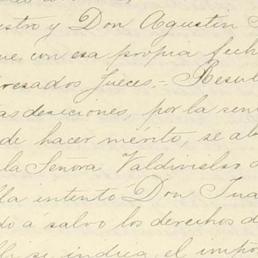 estro y Don Agustin
ue, con esa propia fech
resados Jueces.- Resul
tas desiciones, por la sen
de hacer mérito, se ab
la Señora Valdivielso
lla intento Don Jua
do a salvo los derechos d
se indica el impo